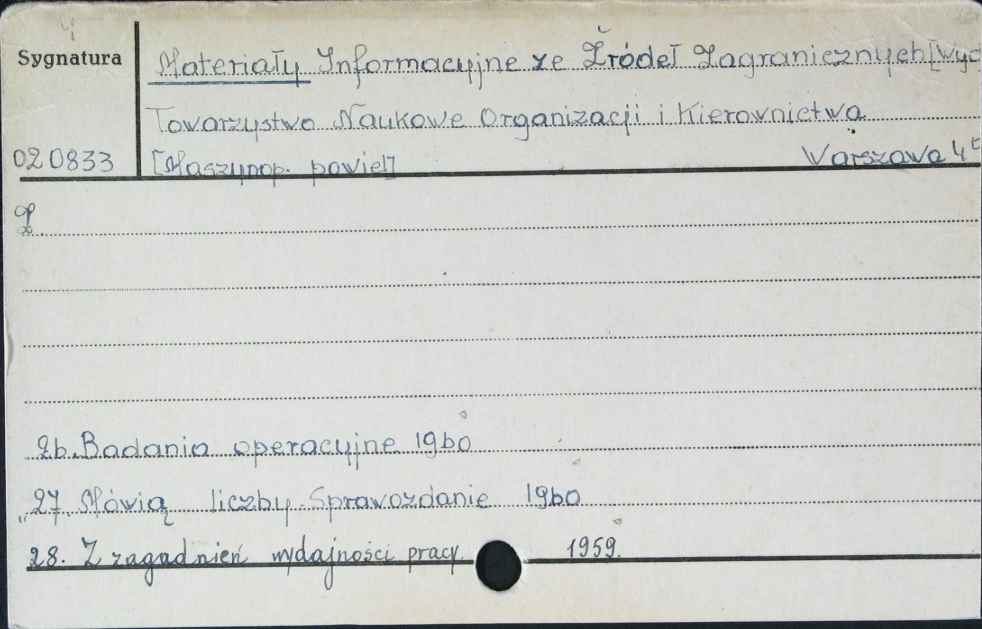 Sygnatura
Materiały Informacyjne ze Źródeł Zagranicznych [Wyd
Towarzystwo Naukowe Organizacji i Kierownictwa
020833 [Maszynop. powiel] Warszawa 4°
26. Badania operacyjne 1960
27. Mówią liczby. Sprawozdanie 1960
28. Z zagadnień wydajności pracy 1959.